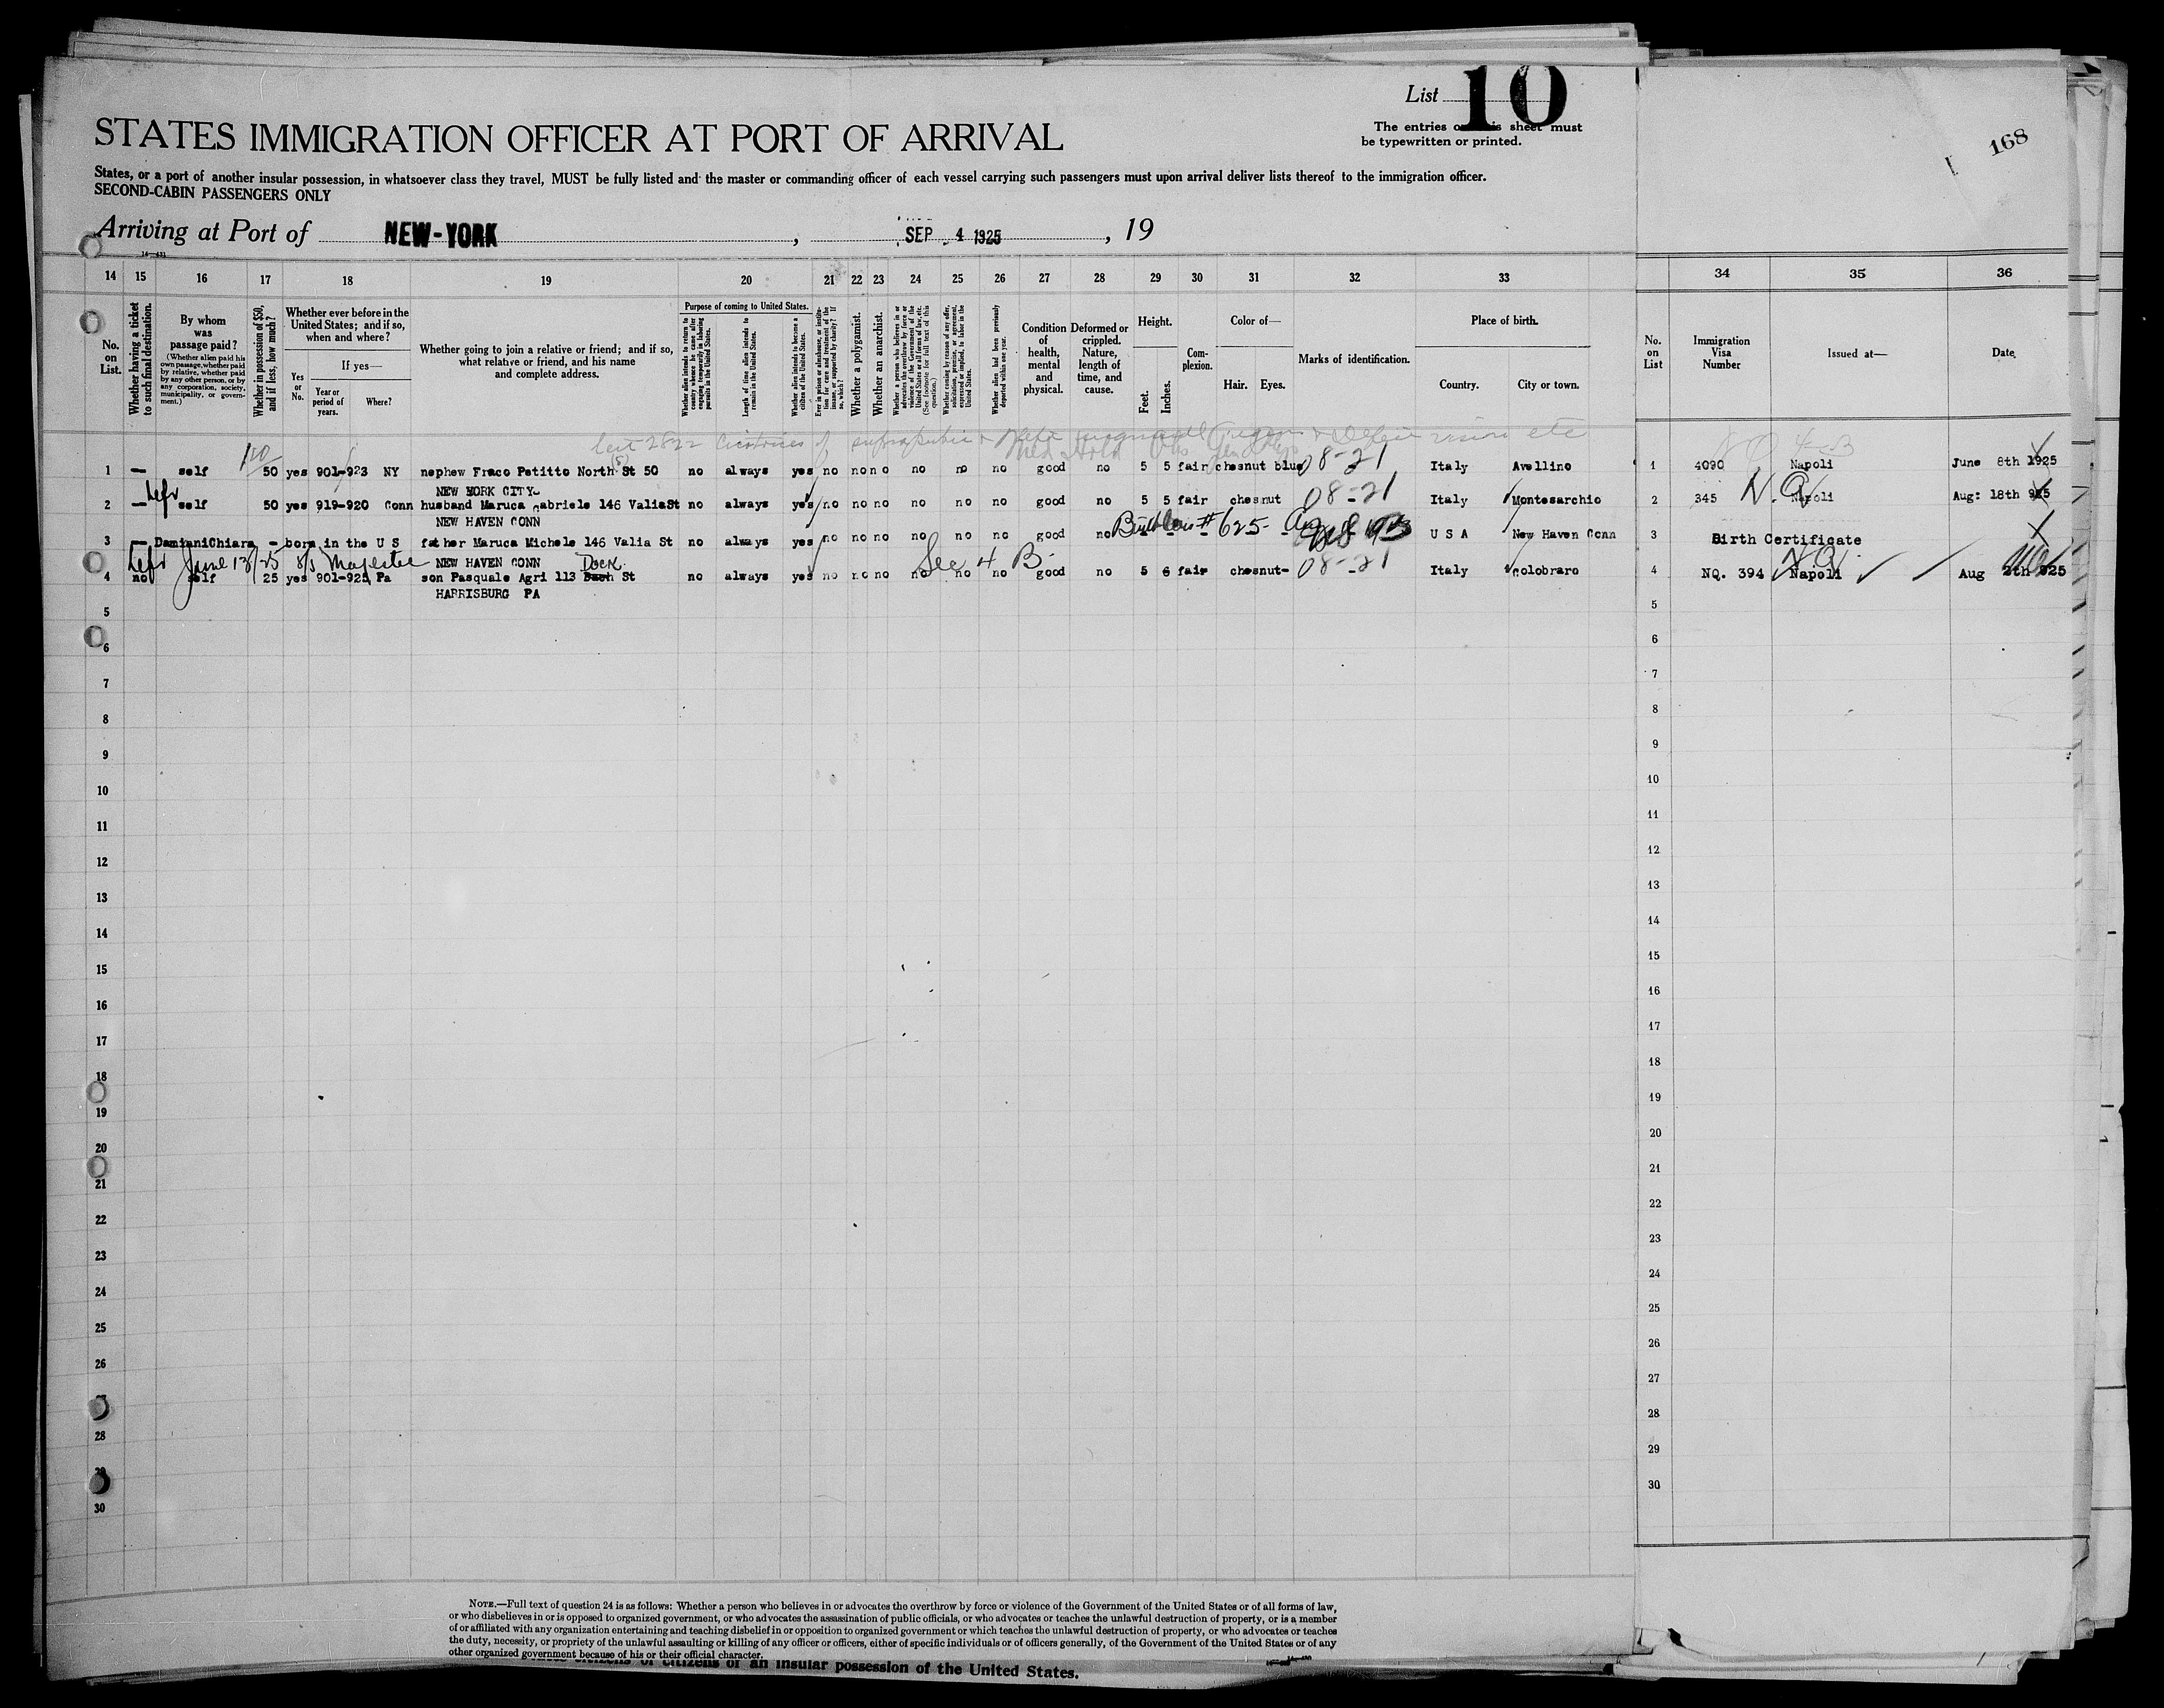 List 10
The entries on this sheet must
be typewritten or printed.
168
STATES IMMIGRATION OFFICER AT PORT OF ARRIVAL
States, or a port of another insular possession, in whatsoever class they travel, MUST be fully listed and the master or commanding officer of each vessel carrying such passengers must upon arrival deliver lists thereof to the immigration officer.
SECOND-CABIN PASSENGERS ONLY
Arriving at Port of NEW-YORK , SEP 4 1925 , 19
14 15 16 17 18 19 20 21 22 23 24 25 26 27 28 29 30 31 32 33 34 35 36
No. on List.
Whether having a ticket to such final destination.
By whom was passage paid?
(Whether alien paid his own passage, whether paid by relative, whether paid by any other person, or by any corporation, society, municipality, or government.)
Whether in possession of $50, and if less, how much?
Whether ever before in the United States; and if so, when and where?
Yes or No.
If yes—
Year or period of years.
Where?
Whether going to join a relative or friend; and if so, what relative or friend, and his name and complete address.
Purpose of coming to United States.
Whether alien intends to return to country whence he came after engaging temporarily in laboring pursuits in the United States.
Length of time alien intends to remain in the United States.
Whether alien intends to become a citizen of the United States.
Ever in prison or almshouse, or institution for care and treatment of the insane, or supported by charity? If so, which?
Whether a polygamist.
Whether an anarchist.
Whether a person who believes in or advocates the overthrow by force or violence of the Government of the United States or all forms of law, etc. (See footnote for full text of this question.)
Whether coming by reason of any offer, solicitation, promise, or agreement, expressed or implied, to labor in the United States.
Whether alien had been previously deported within one year.
Condition of health, mental and physical.
Deformed or crippled. Nature, length of time, and cause.
Height.
Feet.
Inches.
Complexion.
Color of—
Hair. Eyes.
Marks of identification.
Place of birth.
Country. City or town.
No. on List
Immigration Visa Number
Issued at—
Date
1 — self 50 yes 901-923 NY nephew Fraco Petitto North St 50 no always yes no no no no no no good no 5 5 fair chesnut blue 08-21 Italy Avellino 1 4090 Napoli June 8th 1925
NEW YORK CITY-
2 — self 50 yes 919-920 Conn husband Maruca Gabriele 146 Valia St no always yes no no no no no no good no 5 5 fair chesnut 08-21 Italy Montesarchio 2 345 N.Q. Napoli Aug: 18th 925
NEW HAVEN CONN
3 — Damiani Chiara - born in the U S father Maruca Michele 146 Valia St no always yes no no no no no no good no # 625 USA New Haven Conn 3 Birth Certificate
Left June 13/25 S/S Majestic NEW HAVEN CONN Dock See 4 B.
4 no self 25 yes 901-925 Pa son Pasquale Agri 113 Bach St no always yes no no no no no no good no 5 6 fair chesnut- 08-21 Italy Colobraro 4 NQ. 394 Napoli Aug 2th 925
HARRISBURG PA
5 5
6 6
7 7
8 8
9 9
10 10
11 11
12 12
13 13
14 14
15 15
16 16
17 17
18 18
19 19
20 20
21 21
22 22
23 23
24 24
25 25
26 26
27
28 28
29 29
30 30
NOTE.—Full text of question 24 is as follows: Whether a person who believes in or advocates the overthrow by force or violence of the Government of the United States or of all forms of law,
or who disbelieves in or is opposed to organized government, or who advocates the assassination of public officials, or who advocates or teaches the unlawful destruction of property, or is a member
of or affiliated with any organization entertaining and teaching disbelief in or opposition to organized government or which teaches the unlawful destruction of property, or who advocates or teaches
the duty, necessity, or propriety of the unlawful assaulting or killing of any officer or officers, either of specific individuals or of officers generally, of the Government of the United States or of any
other organized government because of his or their official character.
citizens of an insular possession of the United States.